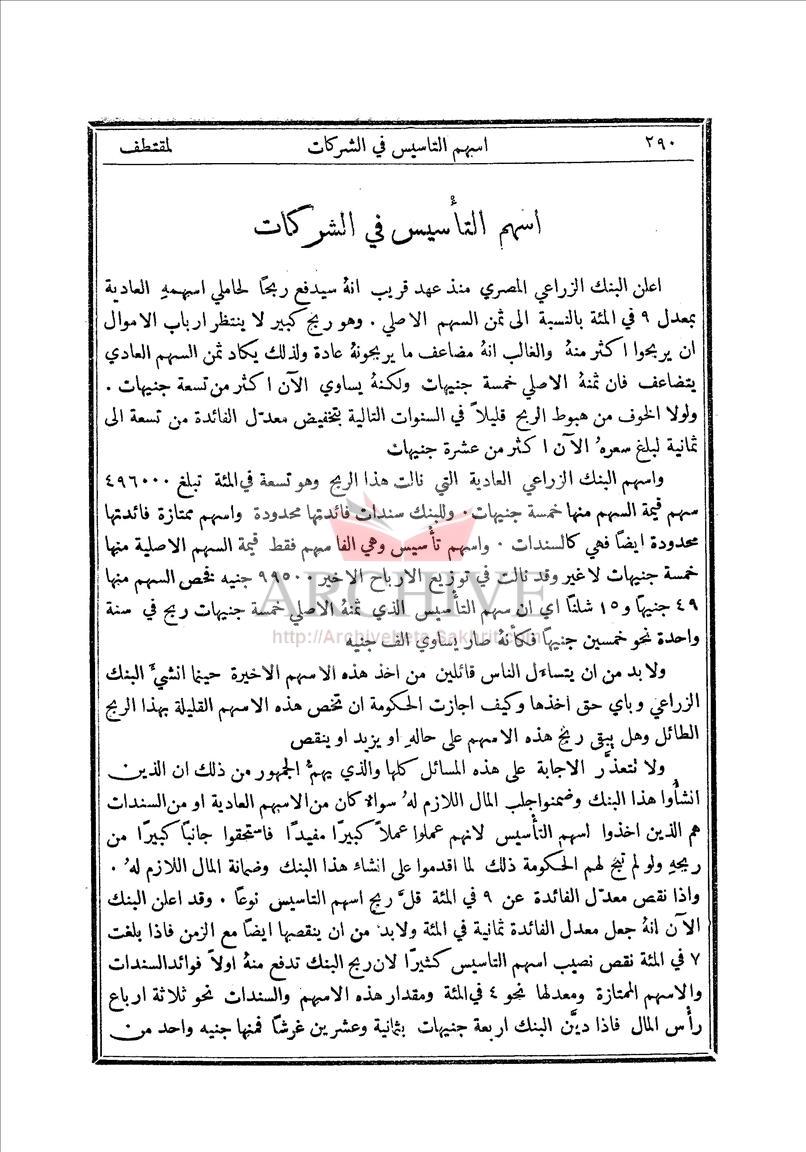 ٢٩٠ اسهم التاسيس في الشركات لمقتطف
اسهم التأسيس في الشركات
اعلن البنك الزراعي المصري منذ عهد قريب انهُ سيدفع ربحًا لحاملي اسهمهِ العادية
بمعدل ٩ في المئة بالنسبة الى ثمن السهم الاصلي . وهو ربح كبير لا ينتظر ارباب الاموال
ان يربحوا اكثر منهُ والغالب انهُ مضاعف ما يربحونهُ عادة ولذلك يكاد ثمن السهم العادي
يتضاعف فان ثمنهُ الاصلي خمسة جنيهات ولكنهُ يساوي الآن اكثر من تسعة جنيهات .
ولولا الخوف من هبوط الربح قليلاً في السنوات التالية بتخفيض معدّل الفائدة من تسعة الى
ثمانية لبلغ سعرهُ الآن اكثر من عشرة جنيهات
واسهم البنك الزراعي العادية التي نالت هذا الربح وهو تسعة في المئة تبلغ ٤٩٦٠٠٠
سهم قيمة السهم منها خمسة جنيهات . وللبنك سندات فائدتها محدودة واسهم ممتازة فائدتها
محدودة ايضًا فهي كالسندات . واسهم تأسيس وهي الفا سهم فقط قيمة السهم الاصلية منها
خمسة جنيهات لا غير وقد نالت في توزيع الارباح الاخير ٩٩٥٠٠ جنيه فخص السهم منها
٤٩ جنيهًا و١٥ شلنًا اي ان سهم التأسيس الذي ثمنهُ الاصلي خمسة جنيهات ربح في سنة
واحدة نحو خمسين جنيهًا فكأنهُ صار يساوي الف جنيه
ولا بد من ان يتساءل الناس قائلين من اخذ هذه الاسهم الاخيرة حينما انشيءَ البنك
الزراعي وباي حق اخذها وكيف اجازت الحكومة ان تخص هذه الاسهم القليلة بهذا الربح
الطائل وهل يبقى ربح هذه الاسهم على حالهِ او يزيد او ينقص
ولا تتعذَّر الاجابة على هذه المسائل كلها والذي يهمُّ الجمهور من ذلك ان الذين
انشأُوا هذا البنك وضمنوا جلب المال اللازم لهُ سواءٌ كان من الاسهم العادية او من السندات
هم الذين اخذوا اسهم التأسيس لانهم عملوا عملاً كبيرًا مفيدًا فاستحقوا جانبًا كبيرًا من
ربحهِ ولو لم تبح لهم الحكومة ذلك لما اقدموا على انشاء هذا البنك وضمانة المال اللازم لهُ .
واذا نقص معدّل الفائدة عن ٩ في المئة قلَّ ربح اسهم التاسيس نوعًا . وقد اعلن البنك
الآن انهُ جعل معدل الفائدة ثمانية في المئة ولا بد من ان ينقصها ايضًا مع الزمن فاذا بلغت
٧ في المئة نقص نصيب اسهم التاسيس كثيرًا لان ربح البنك تدفع منهُ اولاً فوائد السندات
والاسهم الممتازة ومعدلها نحو ٤ في المئة ومقدار هذه الاسهم والسندات نحو ثلاثة ارباع
رأس المال فاذا ديَّن البنك اربعة جنيهات بثمانية وعشرين غرشًا فمنها جنيه واحد من
ARCHIVE
http://Archivebeta.Sakhrit.com